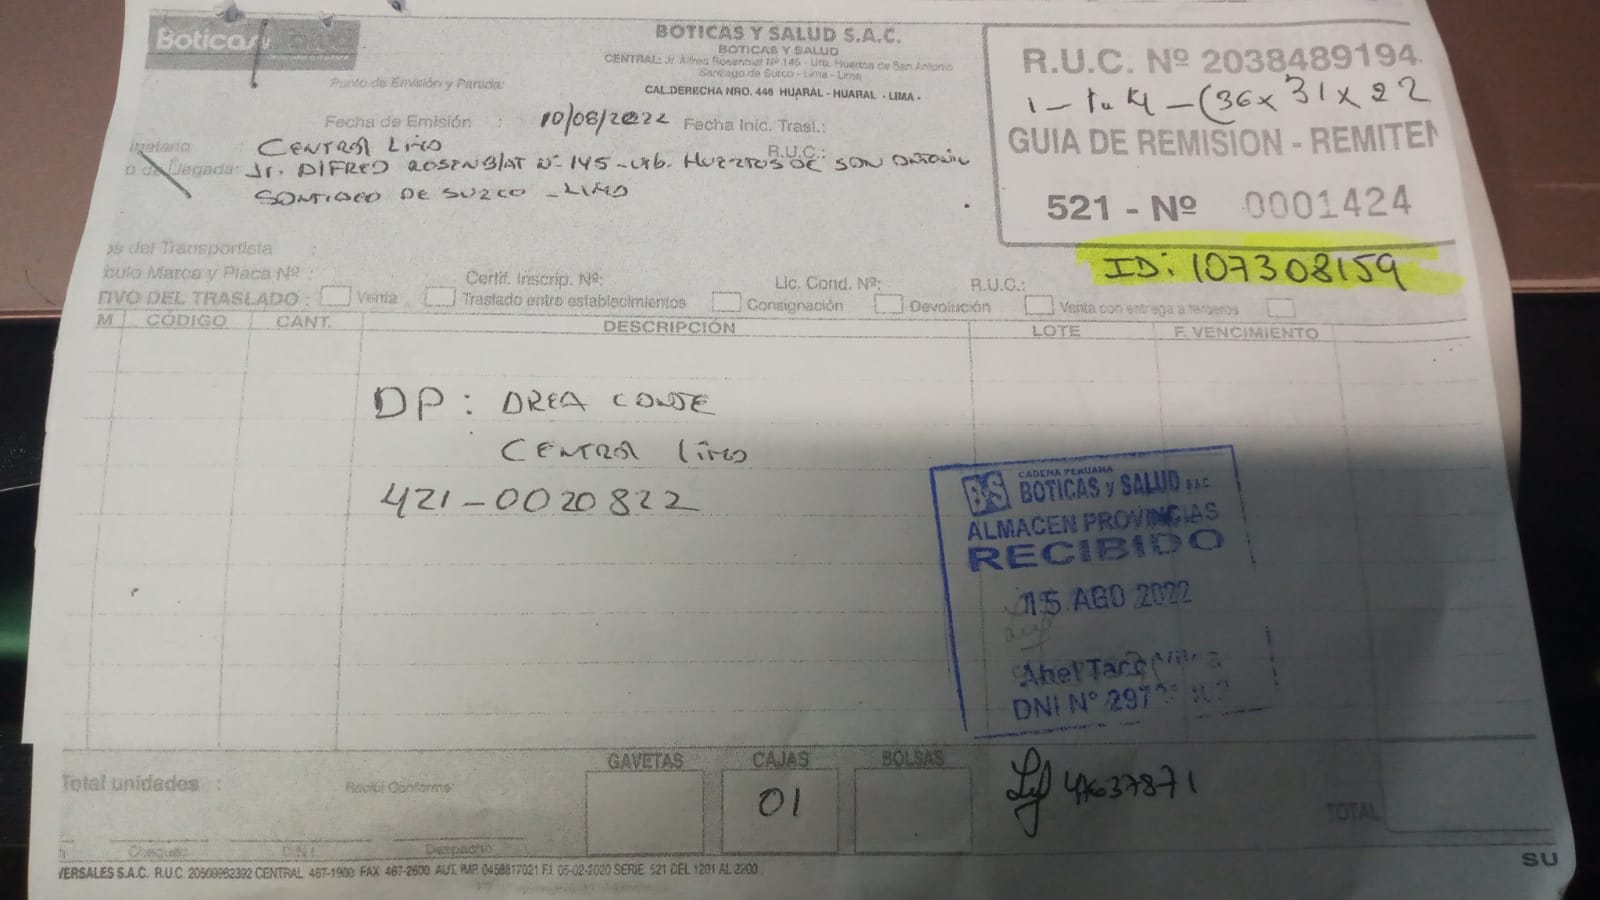 Boticas y
BOTICAS Y SALUD S.A.C.
BOTICAS Y SALUD
CENTRAL: Jr. Alfred Rosenblat Nº 145 - Urb. Huertos de San Antonio
Santiago de Surco - Lima - Lima
Punto de Emisión y Partida:
CAL.DERECHA NRO. 446 HUARAL - HUARAL - LIMA -
Fecha de Emisión : 10/08/2022 Fecha Inic. Trasl.:
R.U.C. Nº 2038489194
1 - 1.  K4 - (36x31x22
GUIA DE REMISION - REMITEN
521 - Nº 0001424
ID: 107308159
inatario : CENTRAL LIMA R.U.C.:
o de Llegada: Jr. ALFRED ROSENBLAT Nº 145 - Urb. HUERTOS DE SAN ANTONIO
SANTIAGO DE SURCO - LIMA
os del Transportista :
culo Marca y Placa Nº : Certif. Inscrip. Nº: Lic. Cond. Nº: R.U.C.:
TIVO DEL TRASLADO : Venta Traslado entre establecimientos Consignación Devolución Venta con entrega a terceros
M CÓDIGO CANT. DESCRIPCIÓN LOTE F. VENCIMIENTO
DP: AREA CANJE
CENTRAL LIMA
421-0020822
CADENA PERUANA
BS BOTICAS y SALUD S.A.C.
ALMACEN PROVINCIAS
RECIBIDO
15 AGO 2022
Abel Taco
DNI Nº 297
GAVETAS CAJAS BOLSAS
Total unidades : Recibí Conforme: 01 TOTAL
Chequeo D.N.I. Despacho
SU
VERSALES S.A.C. R.U.C. 20509962392 CENTRAL 467-1900 FAX 467-2600 AUT. IMP. 0458817021 F.I. 05-02-2020 SERIE 521 DEL 1201 AL 2200